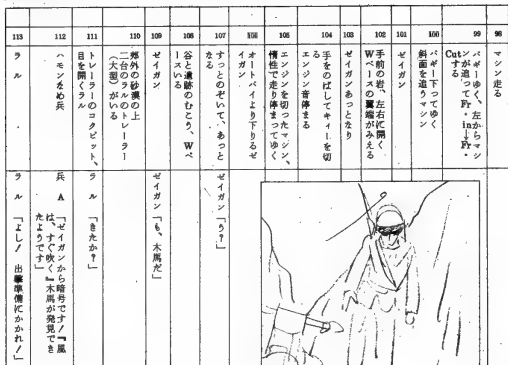 98
マシン走る
99
バギーゆく、左からマシ
ンが追ってFr・in↓Fr・
Cutする
100
バギー下ってゆく
斜面を追うマシン
101
ゼイガン
102
手前の岩、左右に開く
Wベースの翼端がみえる
103
ゼイガンあっとなり
104
手をのばしてキィーを切
る
エンジン音停まる
105
エンジンを切ったマシン、
惰性で走り停まってゆく
106
オートバイより下りるゼ
イガン
107
すっとのぞいて、あっと
なる
ゼイガン「う?」
108
谷と遺跡のむこう、Wベ
ースいる
109
ゼイガン
ゼイガン「も、木馬だ」
110
郊外の砂漠の上
二台のラルのトレーラー
(大型)がいる
111
トレーラーのコクピット、
目を開くラル
ラル「きたか?」
112
ハモンなめ兵
兵A「ゼイガンから暗号です!『風
は、すぐ吹く』木馬が発見でき
たようです」
113
ラル
ラル「よし! 出撃準備にかかれ!」